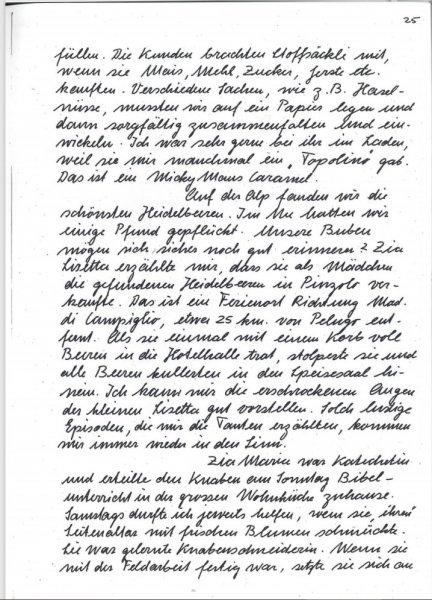 25
füllen. Die Kunden brachten Stoffsäckli mit,
wenn sie Mais, Mehl, Zucker, Gerste etc.
kauften. Verschiedene Sachen, wie z.B. Hasel-
nüsse, mussten wir auf ein Papier legen und
dann sorgfältig zusammenfalten und ein-
wickeln. Ich war sehr gerne bei ihr im Laden,
weil sie mir manchmal ein "Topolino" gab.
Das ist ein Micky Maus Caramel.
Auf der Alp fanden wir die
schönsten Heidelbeeren. Im Nu hatten wir
einige Pfund gepflückt. Unsere Buben
mögen sich sicher noch gut erinnern? Zia
Lisetta erzählte mir, dass sie als Mädchen
die gefundenen Heidelbeeren in Pinzolo ver-
kaufte. Das ist ein Ferienort Richtung Mad.
di Campiglio, etwa 25 km. von Pelugo ent-
fernt. Als sie einmal mit einem Korb voll
Beeren in die Hotelhalle trat, stolperte sie und
alle Beeren kullerten in den Speisesaal hi-
nein. Ich kann mir die erschrockenen Augen
der kleinen Lisetta gut vorstellen. Solch lustige
Episoden, die mir die Tanten erzählten, kommen
mir immer wieder in den Sinn.
Zia Maria war Katechetin
und erteilte den Knaben am Sonntag Bibel-
unterricht in der grossen Wohnküche zuhause.
Samstags durfte ich jeweils helfen, wenn sie "ihren"
Seitenaltar mit frischen Blumen schmückte.
Sie war gelernte Knabenschneiderin. Wenn sie
mit der Feldarbeit fertig war, setzte sie sich an